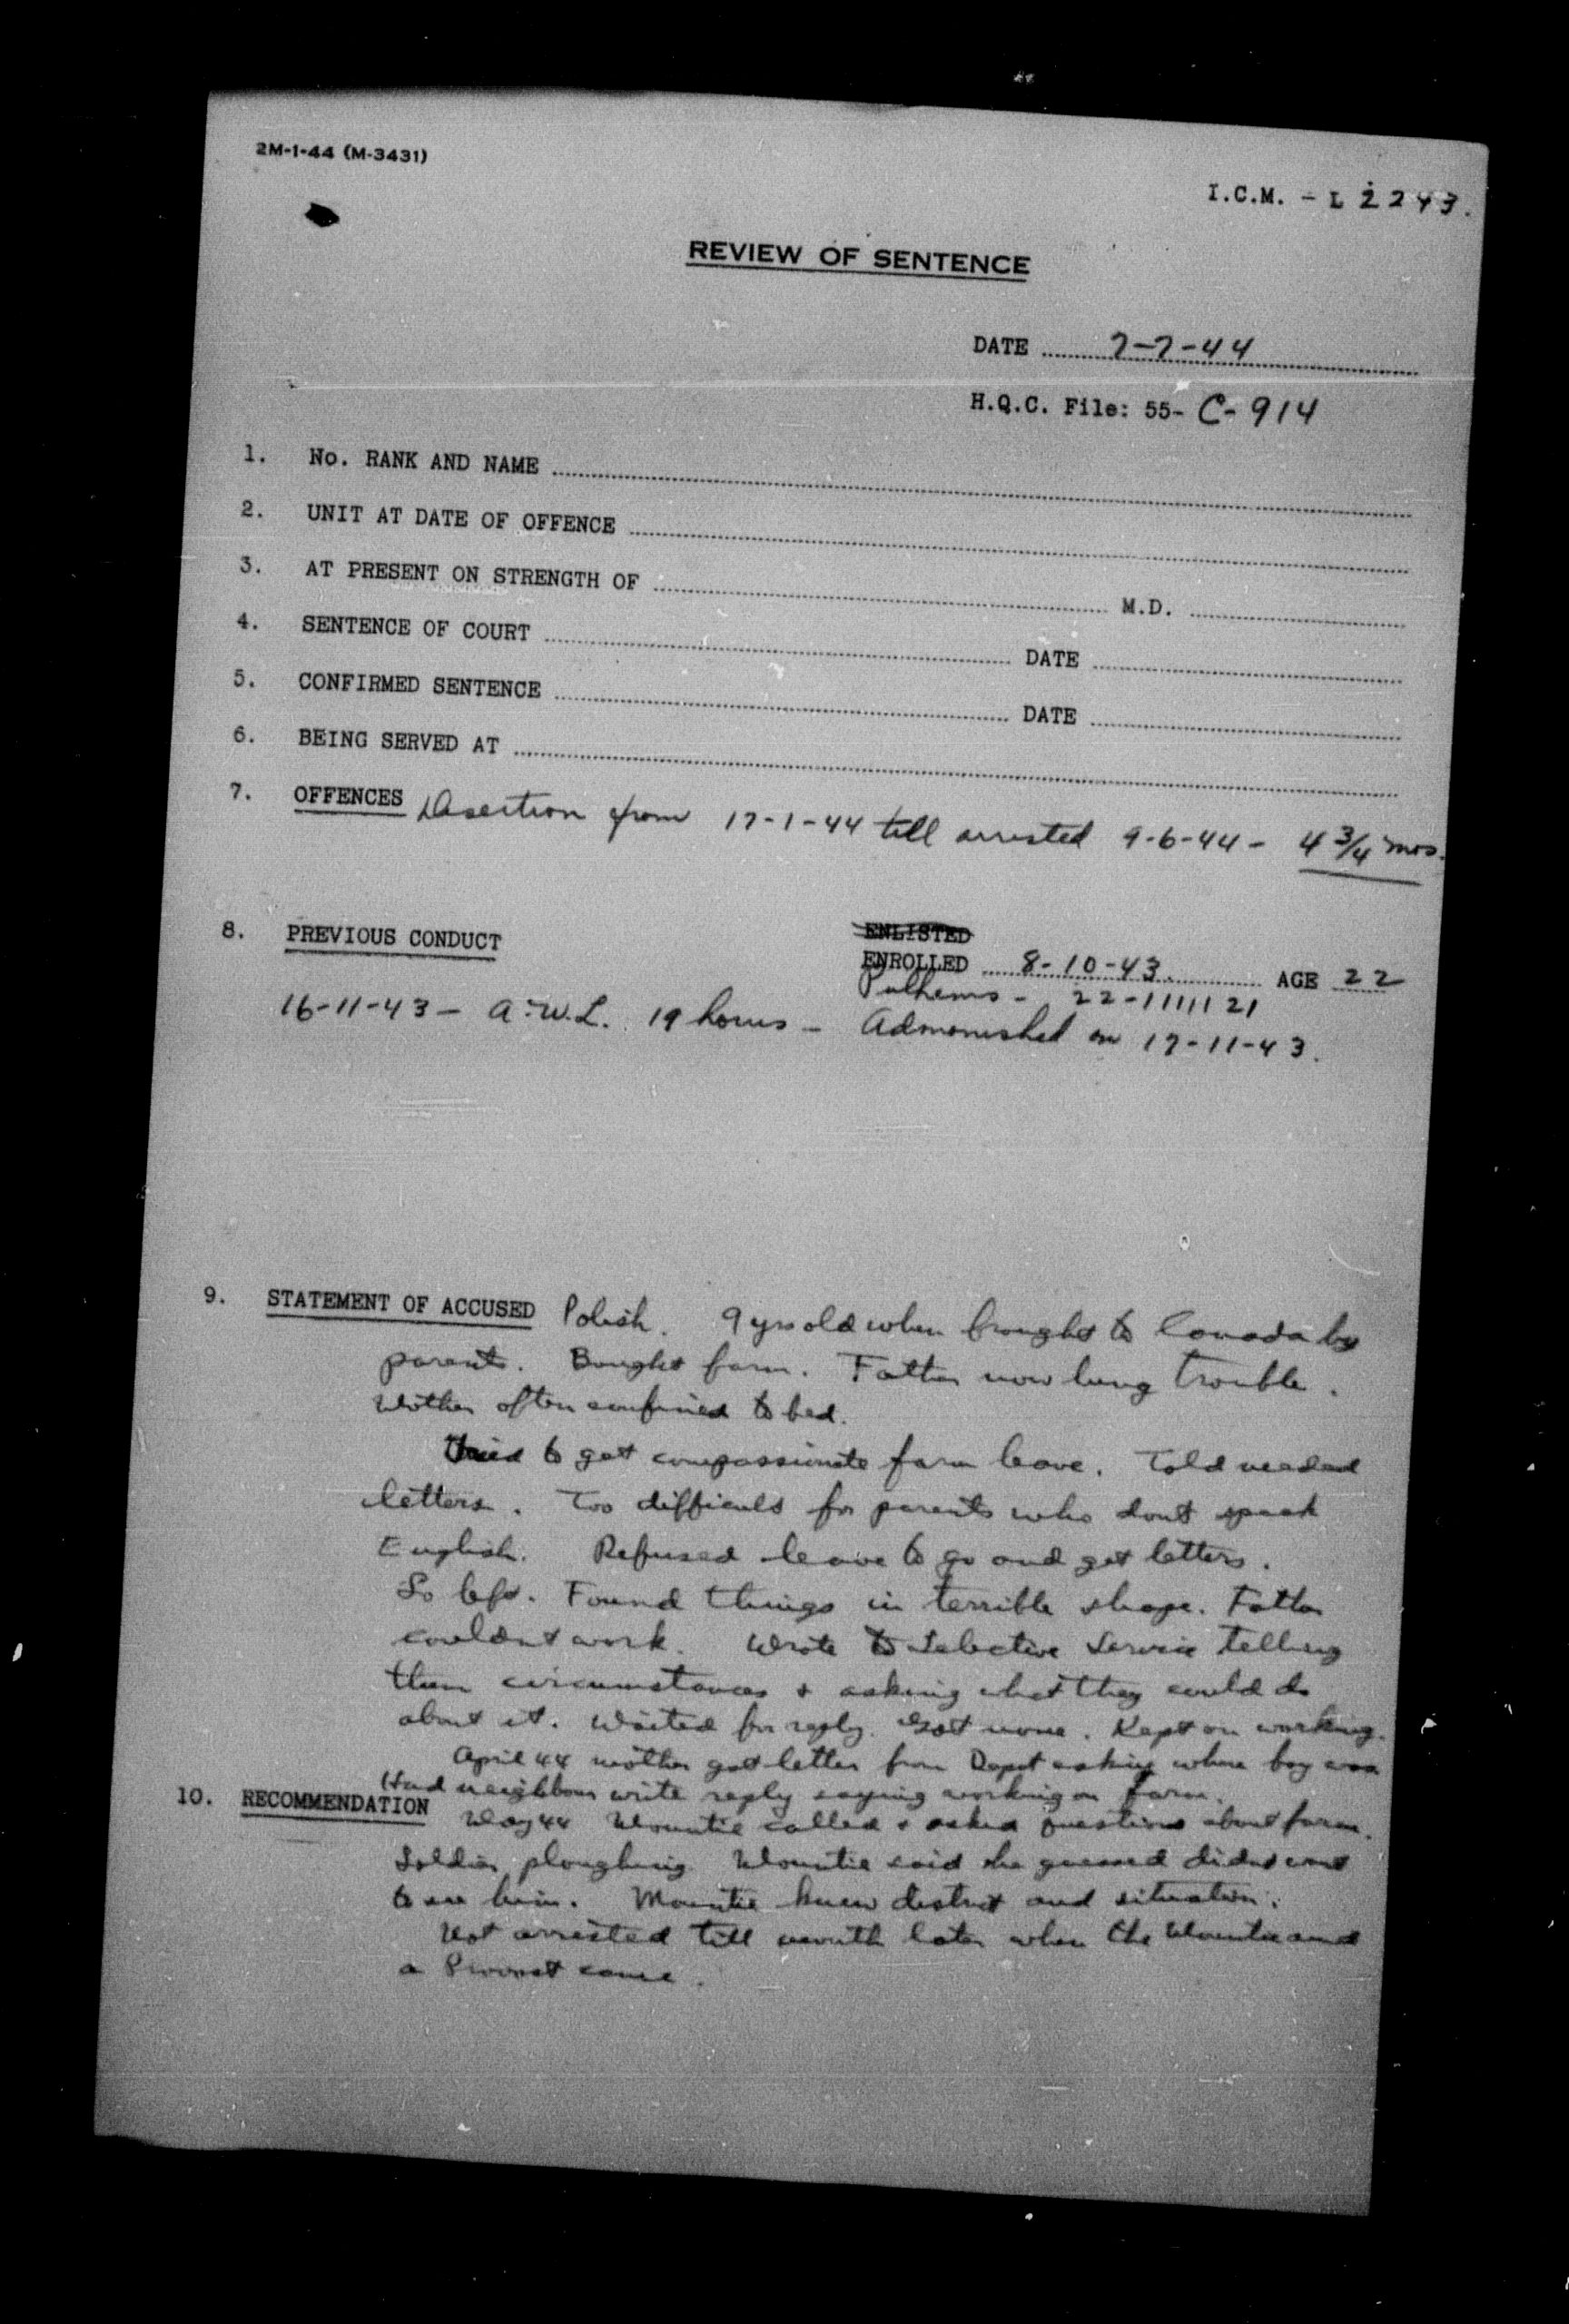 2M-1-44 (M-3431)
I.C.M. - L 2243.
REVIEW OF SENTENCE
DATE 7-7-44
H.Q.C. File: 55- C-914
1. No. RANK AND NAME
2. UNIT AT DATE OF OFFENCE
3. AT PRESENT ON STRENGTH OF M.D.
4. SENTENCE OF COURT DATE
5. CONFIRMED SENTENCE DATE
6. BEING SERVED AT
7. OFFENCES Desertion from 17-1-44 till arrested 9-6-44 - 4 3/4 mos.
8. PREVIOUS CONDUCT ENLISTED
ENROLLED 8-10-43. AGE 22
Pulhems - 22-1111121
16-11-43 - A.W.L. 19 hours - Admonished on 17-11-43.
9. STATEMENT OF ACCUSED Polish. 9 yrs old when brought to Canada by
parents. Bought farm. Father now lung trouble.
Mother often confined to bed.
Tried to get compassionate farm leave. Told needed
letters. Too difficult for parents who dont speak
English. Refused leave to go and get letters.
So left. Found things in terrible shape. Father
couldnt work. Wrote to Selective Service telling
them circumstances & asking what they could do
about it. Waited for reply. Got none. Kept on working.
April 44 mother got letter from Depot asking where boy was
Had neighbour write reply saying working on farm.
10. RECOMMENDATION
May 44 Mountie called & asked questions about farm.
Soldier ploughing. Mountie said he guessed didnt want
to see him. Mountie knew district and situation.
Not arrested till month later when the Mountie and
a Provost came.